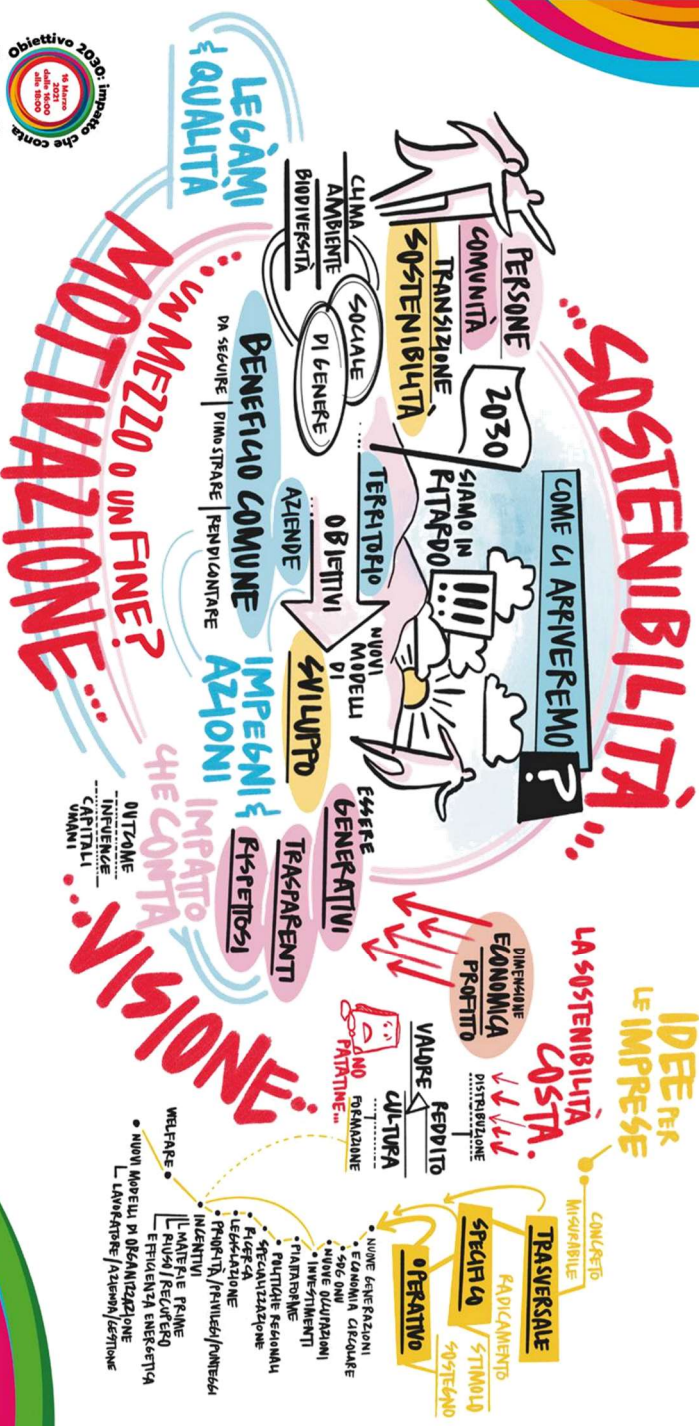 Obiettivo 2030: impatto che conta.
16 Marzo
2021
dalle 16:00
alle 18:00
LEGÀMI
& QUALITÀ
...SOSTENIBILITÀ...
PERSONE
COMUNITÀ
TRANSIZIONE
SOSTENIBILITÀ
2030
COME CI ARRIVEREMO
?
SIAMO IN
RITARDO
CLIMA
AMBIENTE
BIODIVERSITÀ
SOCIALE
DI GENERE
...
TERRITORIO
OBIETTIVI
...
AZIENDE
BENEFICIO COMUNE
DA SEGUIRE | DIMOSTRARE | RENDICONTARE
NUOVI
MODELLI
DI
SVILUPPO
IMPEGNI &
AZIONI
...UN MEZZO O UN FINE?
MOTIVAZIONE...
ESSERE
GENERATIVI
TRASPARENTI
RISPETTOSI
IMPATTO
CHE CONTA
OUTCOME
INFLUENCE
CAPITALI
UMANI
...VISIONE...
DIMENSIONE
ECONOMICA
PROFITTO
LA SOSTENIBILITÀ
COSTA.
DISTRIBUZIONE
REDDITO
VALORE
CULTURA
FORMAZIONE
NO
PATATINE...
IDEE PER
LE IMPRESE
CONCRETO
MISURABILE
TRASVERSALE
RADICAMENTO
SPECIFICO
STIMOLO
OPERATIVO
SOSTEGNO
• NUOVE GENERAZIONI
• ECONOMIA CIRCOLARE
• SDG ONU
• NUOVE OCCUPAZIONI
• INVESTIMENTI
• PIATTAFORME
• POLITICHE REGIONALI
• SPECIALIZZAZIONE
• RICERCA
• LEGISLAZIONE
• PRIORITÀ/PRIVILEGI/PUNTEGGI
• INCENTIVI
MATERIE PRIME
RIUSI/RECUPERO
EFFICIENZA ENERGETICA
WELFARE •
• NUOVI MODELLI DI ORGANIZZAZIONE
LAVORATORE/AZIENDA/GESTIONE